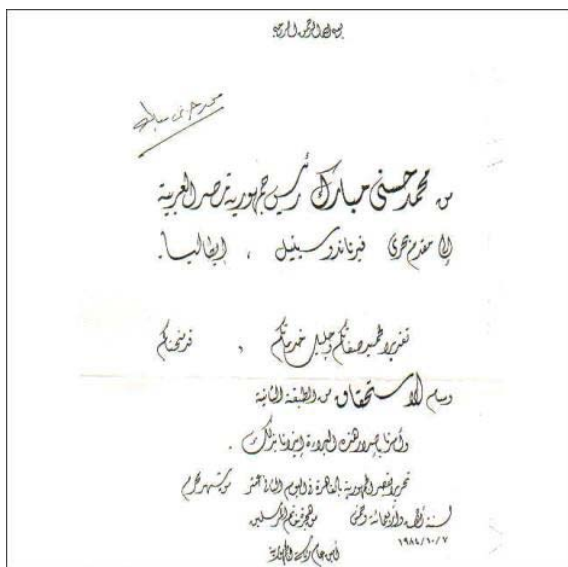 بسم الله الرحمن الرحيم
محمد حسنى مبارك
من محمد حسنى مبارك رئيس جمهورية مصر العربية
إلى مقدم بحرى فيرناندو سينيل ، إيطاليا .
تقديرا لحميد صفاتكم وجليل خدماتكم ، قد منحناكم
وسام الاستحقاق من الطبقة الثانية
وأمرنا بإصدار هذه البراءة إيذانا بذلك .
تحريرا بقصر الجمهورية بالقاهرة فى اليوم الثانى عشر من شهر محرم
لسنة ألف وأربعمائة وخمس من هجرة خاتم المرسلين
١٩٨٤/١٠/٧
أمين عام رئاسة الجمهورية